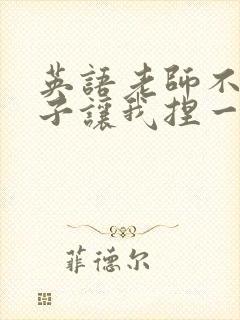 英語老師不
子讓我捏一
菲德尔